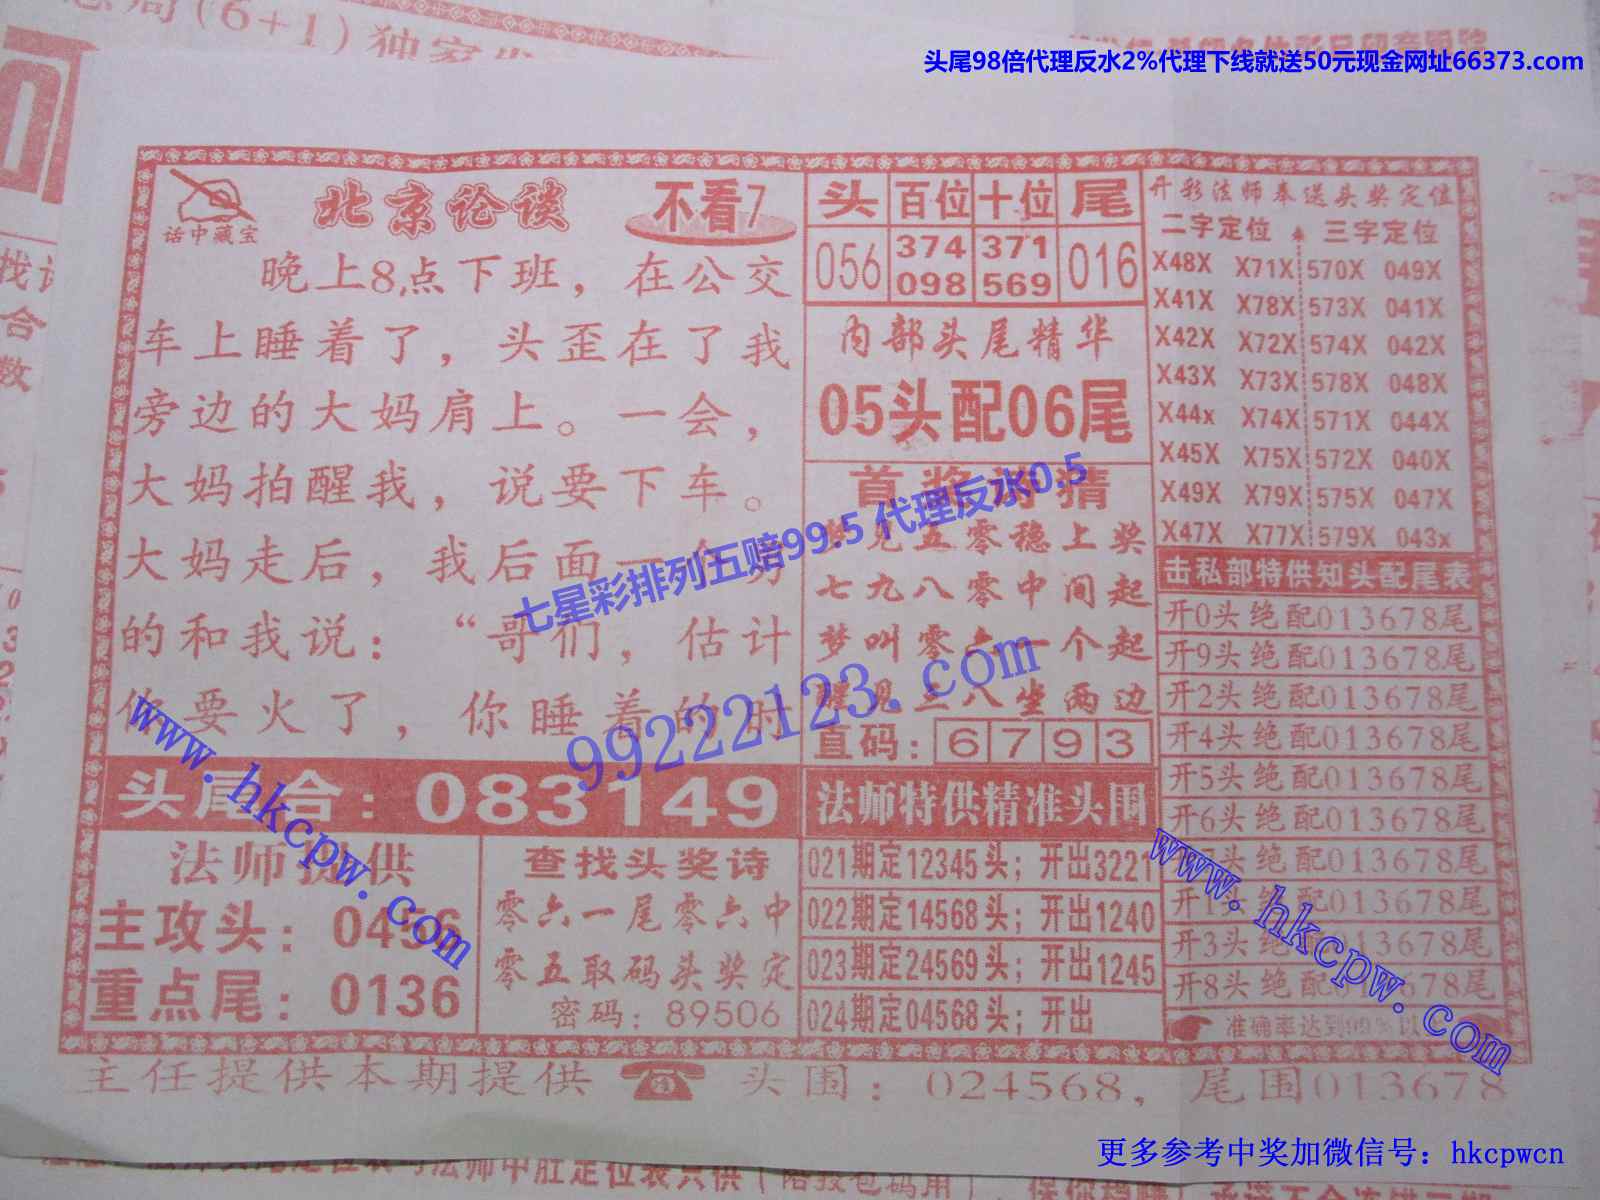 (6+1)独家
头尾98倍代理反水2%代理下线就送50元现金网址66373.com
话中藏宝
北京论谈
不看7
晚上8点下班，在公交
车上睡着了，头歪在了我
旁边的大妈肩上。一会，
大妈拍醒我，说要下车。
大妈走后，我后面一个
的和我说：“哥们，估计
你要火了，你睡着的时
头尾合：083149
法师提供
主攻头：0456
重点尾：0136
查找头奖诗
零六一尾零六中
零五取码头奖定
密码：89506
头 百位 十位 尾
056 374 371 016
098 569
内部头尾精华
05头配06尾
首奖诗猜
见五零稳上奖
七九八零中间起
梦叫零六一个起
醒见三八坐两边
直码：6 7 9 3
法师特供精准头围
021期定12345头；开出3221
022期定14568头；开出1240
023期定24569头；开出1245
024期定04568头；开出
开彩法师奉送头奖定位
二字定位 三字定位
X48X X71X 570X 049X
X41X X78X 573X 041X
X42X X72X 574X 042X
X43X X73X 578X 048X
X44x X74X 571X 044X
X45X X75X 572X 040X
X49X X79X 575X 047X
X47X X77X 579X 043x
击私部特供知头配尾表
开0头绝配013678尾
开9头绝配013678尾
开2头绝配013678尾
开4头绝配013678尾
开5头绝配013678尾
开6头绝配013678尾
7头绝配013678尾
开1头绝配013678尾
开3头绝配013678尾
开8头绝配013678尾
准确率达到99%以
主任提供本期提供 头围：024568，尾围013678
七星彩排列五赔99.5 代理反水0.5
99222123.com
www.hkcpw.com
www.hkcpw.com
找
合
数
更多参考中奖加微信号：hkcpwcn